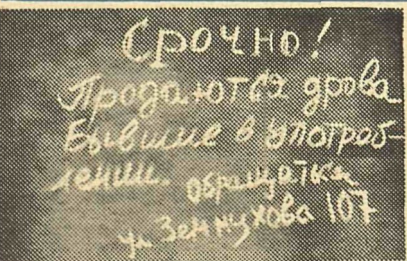 Срочно!
Продаются дрова
Бывшие в употреб-
лении. обращатка
ул Земнухова 107